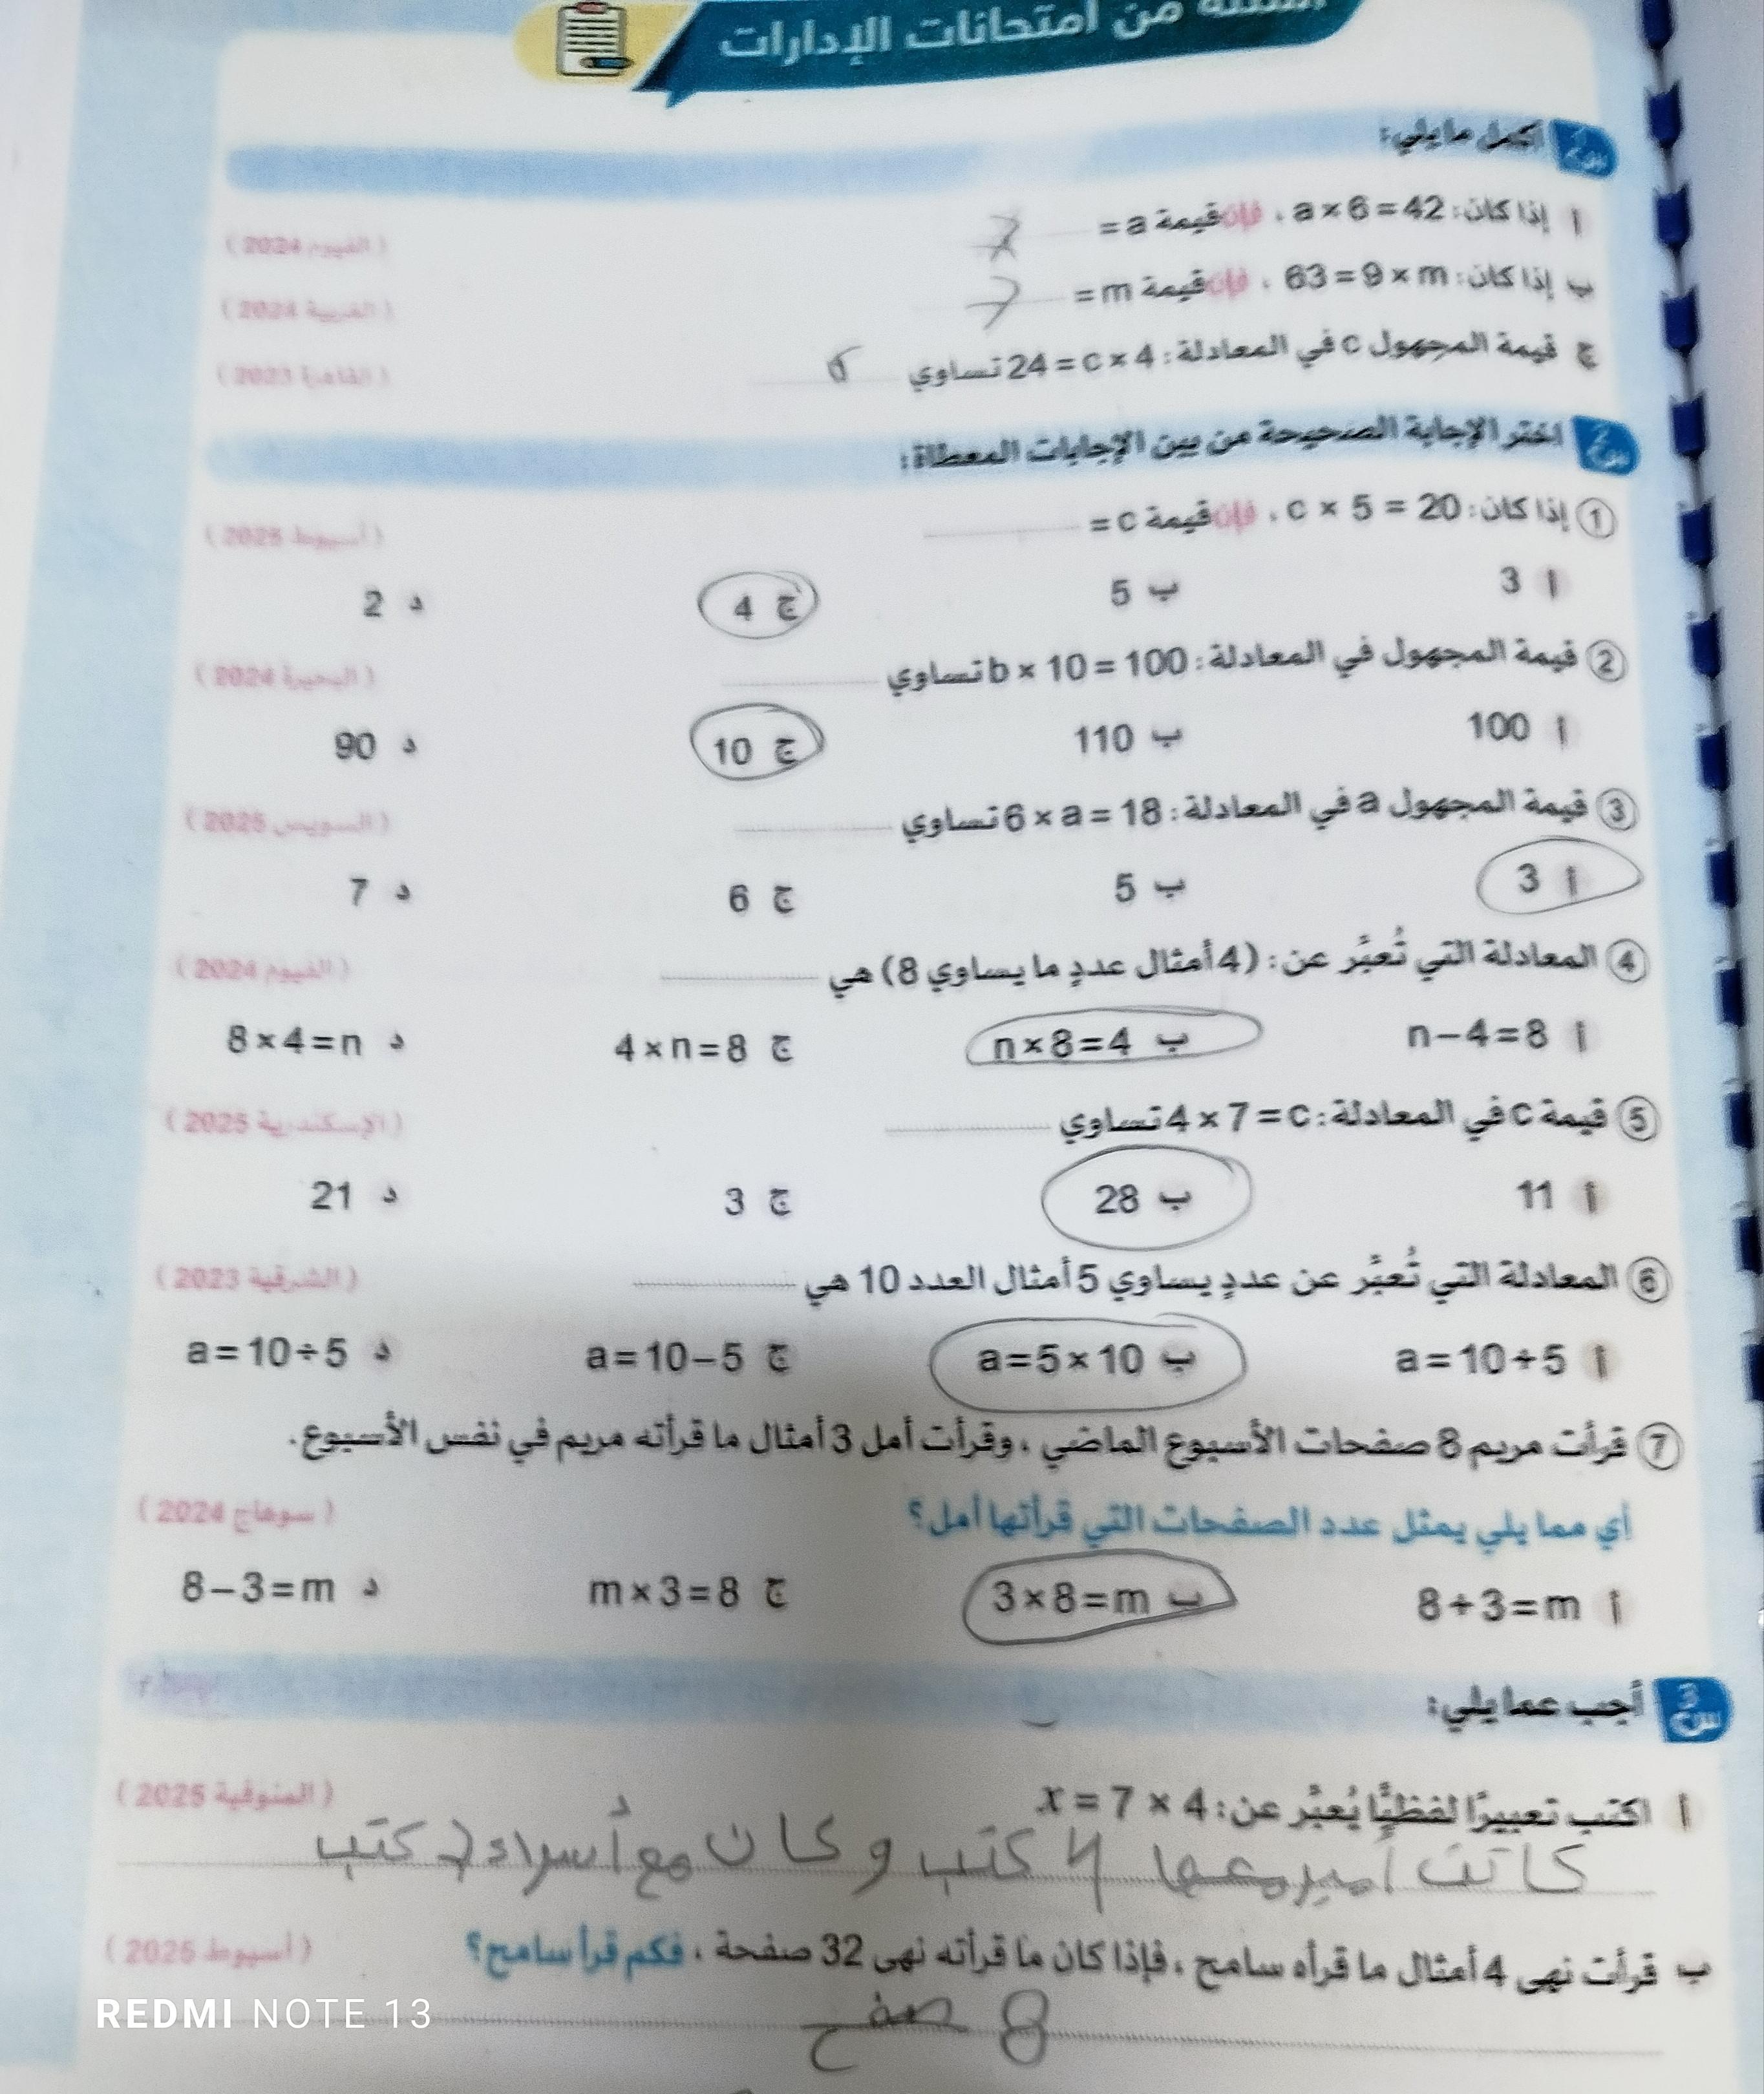 أسئلة من امتحانات الإدارات
س1 أكمل ما يلي:
أ إذا كان: a × 6 = 42 ، فإن قيمة a = 7
(الفيوم 2024)
ب إذا كان: 63 = 9 × m ، فإن قيمة m = 7
(الغربية 2024)
ج قيمة المجهول c في المعادلة: 24 = c × 4 تساوي 6
(القاهرة 2023)
س2 اختر الإجابة الصحيحة من بين الإجابات المعطاة:
① إذا كان: c × 5 = 20 ، فإن قيمة c =
(أسيوط 2025)
أ 3 ب 5 ج 4 د 2
② قيمة المجهول في المعادلة: b × 10 = 100 تساوي
(البحيرة 2024)
أ 100 ب 110 ج 10 د 90
③ قيمة المجهول a في المعادلة: 6 × a = 18 تساوي
(السويس 2025)
أ 3 ب 5 ج 6 د 7
④ المعادلة التي تُعبِّر عن: (4 أمثال عددٍ ما يساوي 8) هي
(الفيوم 2024)
أ n − 4 = 8 ب n × 8 = 4 ج 4 × n = 8 د 8 × 4 = n
⑤ قيمة c في المعادلة: 4 × 7 = c تساوي
(الإسكندرية 2025)
أ 11 ب 28 ج 3 د 21
⑥ المعادلة التي تُعبِّر عن عددٍ يساوي 5 أمثال العدد 10 هي
(الشرقية 2023)
أ a = 10 + 5 ب a = 5 × 10 ج a = 10 − 5 د a = 10 ÷ 5
⑦ قرأت مريم 8 صفحات الأسبوع الماضي ، وقرأت أمل 3 أمثال ما قرأته مريم في نفس الأسبوع.
أي مما يلي يمثل عدد الصفحات التي قرأتها أمل؟
(سوهاج 2024)
أ 8 + 3 = m ب 3 × 8 = m ج m × 3 = 8 د 8 − 3 = m
س3 أجب عما يلي:
أ اكتب تعبيرًا لفظيًّا يُعبِّر عن: x = 7 × 4
(المنوفية 2025)
كانت أمير معها 4 كتب و كان مع أسراء 7 كتب
ب قرأت نهى 4 أمثال ما قرأه سامح ، فإذا كان ما قرأته نهى 32 صفحة ، فكم قرأ سامح؟
(أسيوط 2025)
8 صفح
REDMI NOTE 13